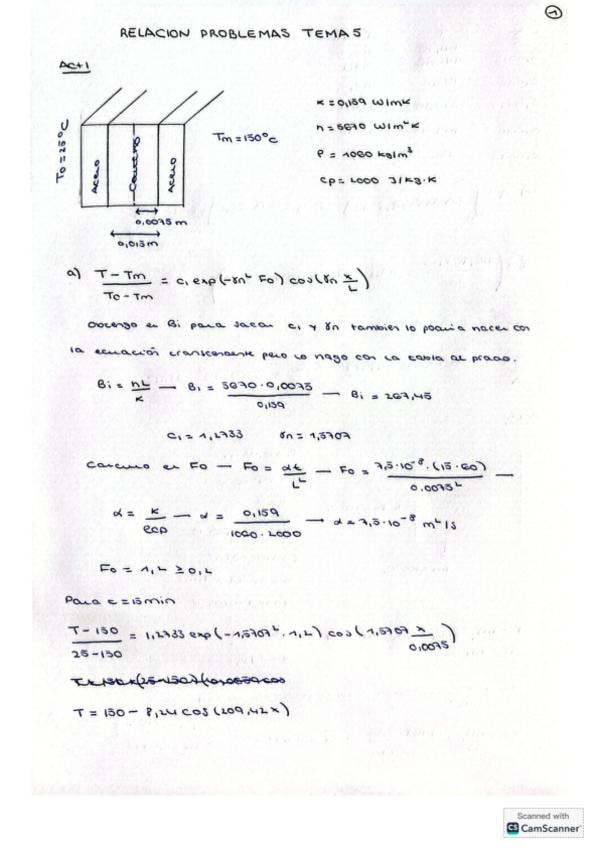 1
RELACION PROBLEMAS TEMA 5
Act 1
T0 = 25°C
Acero
Caucho
Acero
Tm = 150°C
0,0075 m
0,015 m
K = 0,159 W/mK
h = 5670 W/m²K
ρ = 1060 kg/m³
cp = 2000 J/kg·K
a) (T - Tm)/(T0 - Tm) = c1 exp(-γn² Fo) cos(γn x/L)
Obtengo el Bi para sacar c1 y γn tambien lo podria hacer con
la ecuación transcendente pero lo hago con la tabla al grado.
Bi = hL/K — Bi = (5670 · 0,0075)/0,159 — Bi = 267,45
C1 = 1,2733 γn = 1,5707
Calculo el Fo — Fo = αt/L² — Fo = (7,5·10⁻⁸ · (15·60))/0,0075² —
α = K/ρcp — α = 0,159/(1060·2000) → α = 7,5·10⁻⁸ m²/s
Fo = 1,2 ≥ 0,2
Para t = 15 min
(T - 150)/(25 - 150) = 1,2733 exp(-1,5707² · 1,2) cos(1,5707 x/0,0075)
T = 150 - 8,24 cos(209,42 x)
Scanned with
CS CamScanner